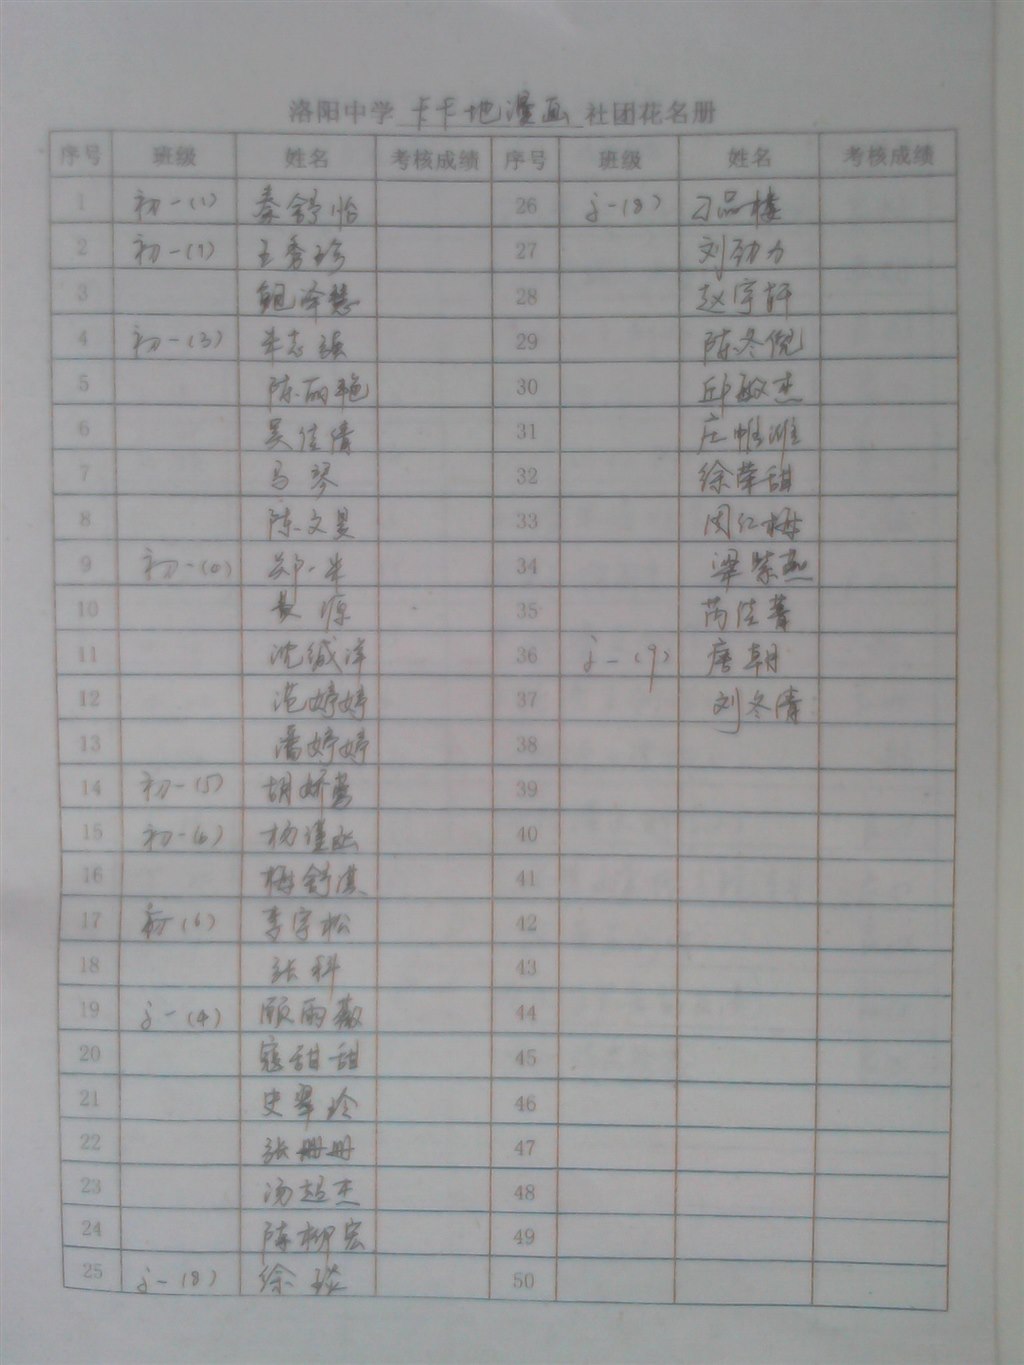 洛阳中学 卡卡地漫画 社团花名册
序号 班级 姓名 考核成绩 序号 班级 姓名 考核成绩
1 初一(1) 秦舒怡 26 初一(8) 品楼
2 初一(1) 王秀珍 27 刘劲力
3 鲍泽慧 28 赵宇轩
4 初一(3) 牟志强 29 陈冬倪
5 陈丽艳 30 邱敏杰
6 吴佳倩 31 庄帷潍
7 马琴 32 徐荣甜
8 陈文昊 33 周红梅
9 初一 郑米 34 梁紫燕
10 源 35 芮佳菁
11 沈诚泽 36 初一(9) 唐朝
12 范婷婷 37 刘冬倩
13 潘婷婷 38
14 初一(5) 胡娇莺 39
15 初一(6) 杨 40
16 梅舒淇 41
17 初一(6) 李宇松 42
18 张科 43
19 初一(4) 顾雨薇 44
20 寇甜甜 45
21 史翠玲 46
22 张册册 47
23 汤超杰 48
24 陈柳宏 49
25 初一(8) 徐琰 50